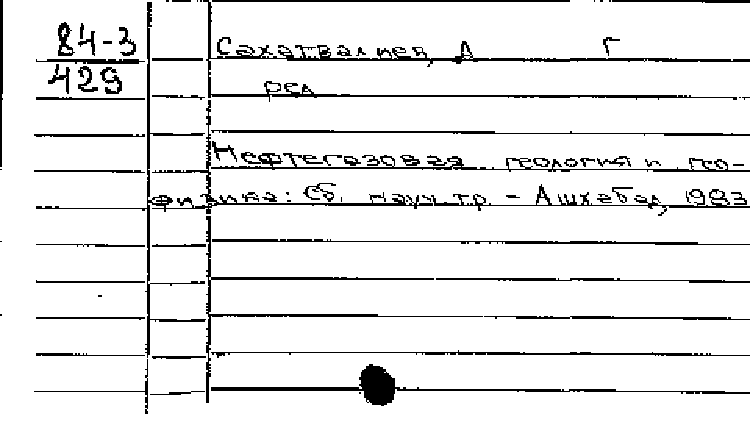 84-3
429
Сахатвалиев, А Г
ред
Нефтегазовая геология и гео-
физика: Сб. науч. тр. - Ашхабад, 1983